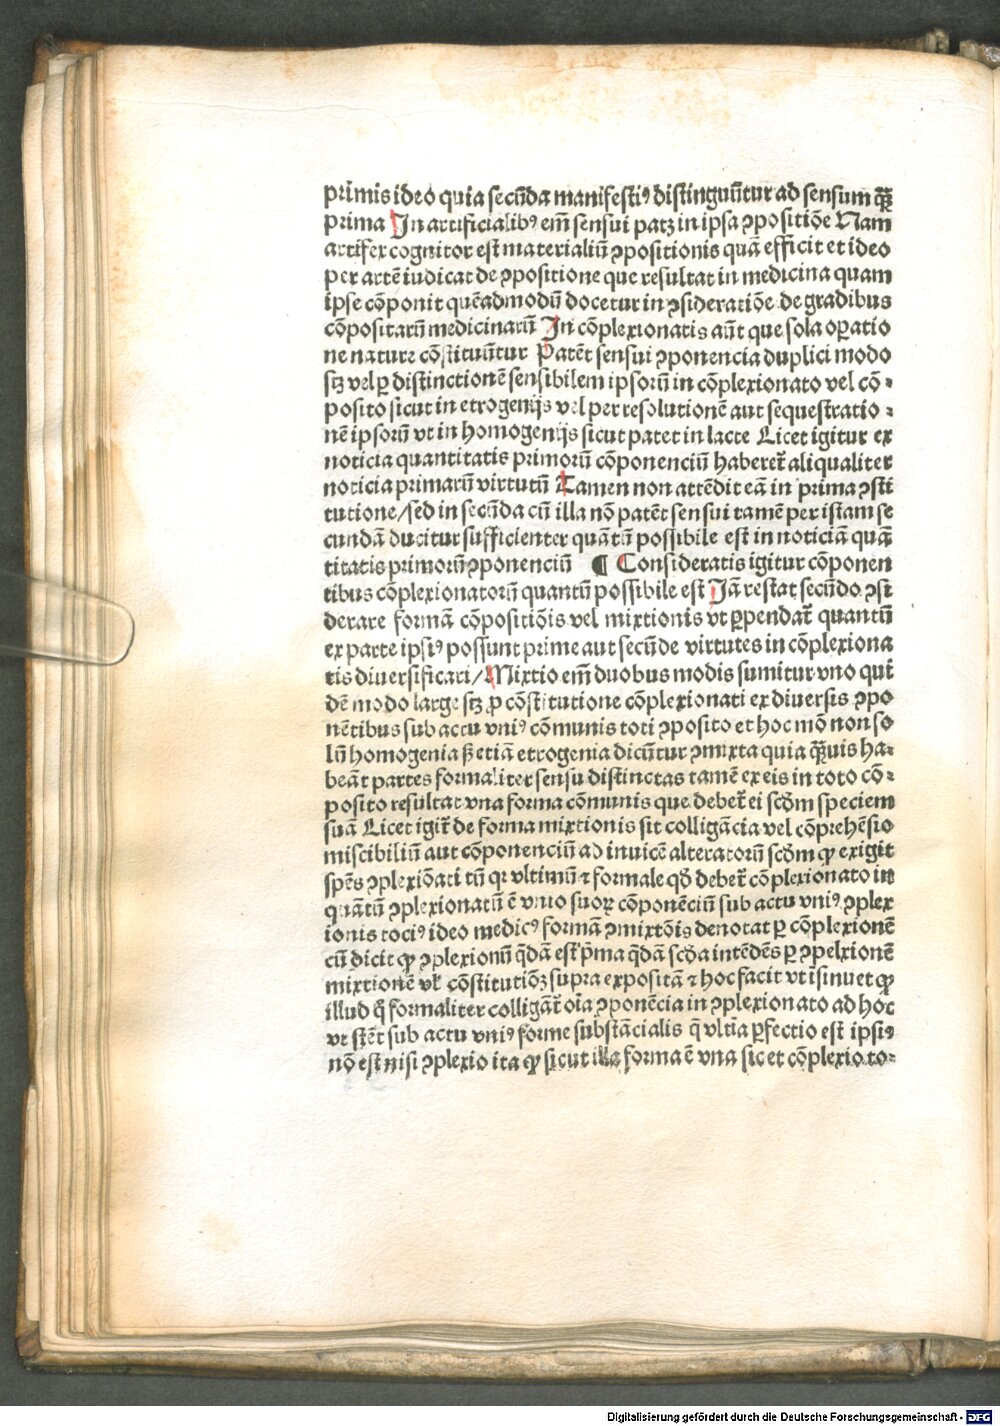 primis ideo quia secūda manifestiꝰ distinguūtur ad sensum q̄ꝫ
prima In artificialibꝰ em̄ sensui patꝫ in ipsa ꝯpositiōe Nam
artifex cognitor est materialiū ꝯpositionis quā efficit et ideo
per artē iudicat de ꝯpositione que resultat in medicina quam
ipse cōponit quēadmodū docetur in ꝯsideratiōe de gradibus
cōpositarū medicinarū In cōplexionatis aūt que sola oꝑatio
ne nature cōstituūtur Patēt sensui ꝯponencia duplici modo
sꝫ vel ꝑ distinctionē sensibilem ipsorū in cōplexionato vel cō⸗
posito sicut in etrogenijs vel per resolutionē aut sequestratio⸗
nē ipsorū vt in homogenijs sicut patet in lacte Licet igitur ex
noticia quantitatis primorū cōponenciū haberet̄ aliqualiter
noticia primarū virtutū Tamen non attēdit eā in prima ꝯsti
tutione/sed in secūda cū illa nō patēt sensui tamē per istam se
cundā ducitur sufficienter quātū possibile est in noticiā quā
titatis primorū ꝯponenciū ¶ Consideratis igitur cōponen
tibus cōplexionatorū quantū possibile est Jā restat secūdo ꝯsi
derare formā cōpositiōis vel mixtionis vt ꝑpendat̄ quantū
ex parte ipsiꝰ possunt prime aut secūde virtutes in cōplexiona
tis diuersificari/Mixtio em̄ duobus modis sumitur vno qui
dē modo large sꝫ ꝓ cōstitutione cōplexionati ex diuersis ꝯpo
nētibus sub actu vniꝰ cōmunis toti ꝯposito et hoc mō non so
lū homogenia ß etiā etrogenia dicūtur ꝯmixta quia q̄ꝫuis ha⸗
beāt partes formaliter sensu distinctas tamē ex eis in toto cō⸗
posito resultat vna forma cōmunis que debet̄ ei scd̄m speciem
suā Licet igit̄ de forma mixtionis sit colligācia vel cōprehēsio
miscibiliū aut cōponenciū ad inuicē alteratorū scd̄m ꝙ exigit
spēs ꝯplexiōati tū qꝛ vltimū ⁊ formale qd̄ debet̄ cōplexionato in
quātū ꝯplexionatū ē vnio suoꝝ cōponēciū sub actu vniꝰ ꝯplex
ionis tociꝰ ideo medicꝰ formā ꝯmixtōis denotat ꝑ cōplexionē
cū dicit ꝙ ꝯplexionū q̄dā est p̄ma q̄dā scd̄a intēdēs ꝑ ꝯpelxionē
mixtionē vl̓ cōstitutiōꝫ supra expositā ⁊ hoc facit vt īsinuet ꝙ
illud q̄ formaliter colligāt̄ oīa ꝯponēcia in ꝯplexionato ad hoc
vt stēt sub actu vniꝰ forme substācialis q̄ vltīa ꝑfectio est ipsiꝰ
nō est nisi ꝯplexio ita ꝙ sicut illa forma ē vna sic et cōplexio to⸗
Digitalisierung gefördert durch die Deutsche Forschungsgemeinschaft - DFG